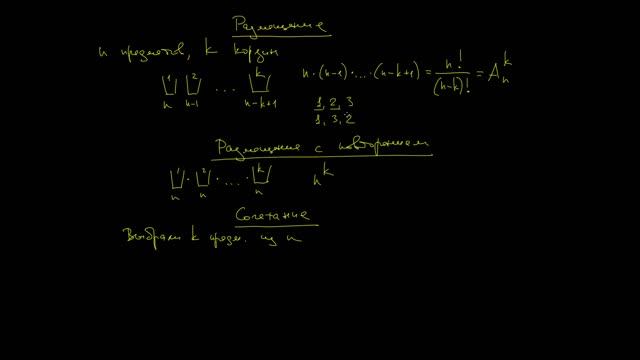 Размещение
n предметов, k корзин
1 2 ... k n·(n-1)·...·(n-k+1) = n!/(n-k)! = A_n^k
n n-1 n-k+1
1, 2, 3
1, 3, 2
Размещение с повторением
1 · 2 · ... · k n^k
n n n
Сочетание
Выбрали k предм. из n